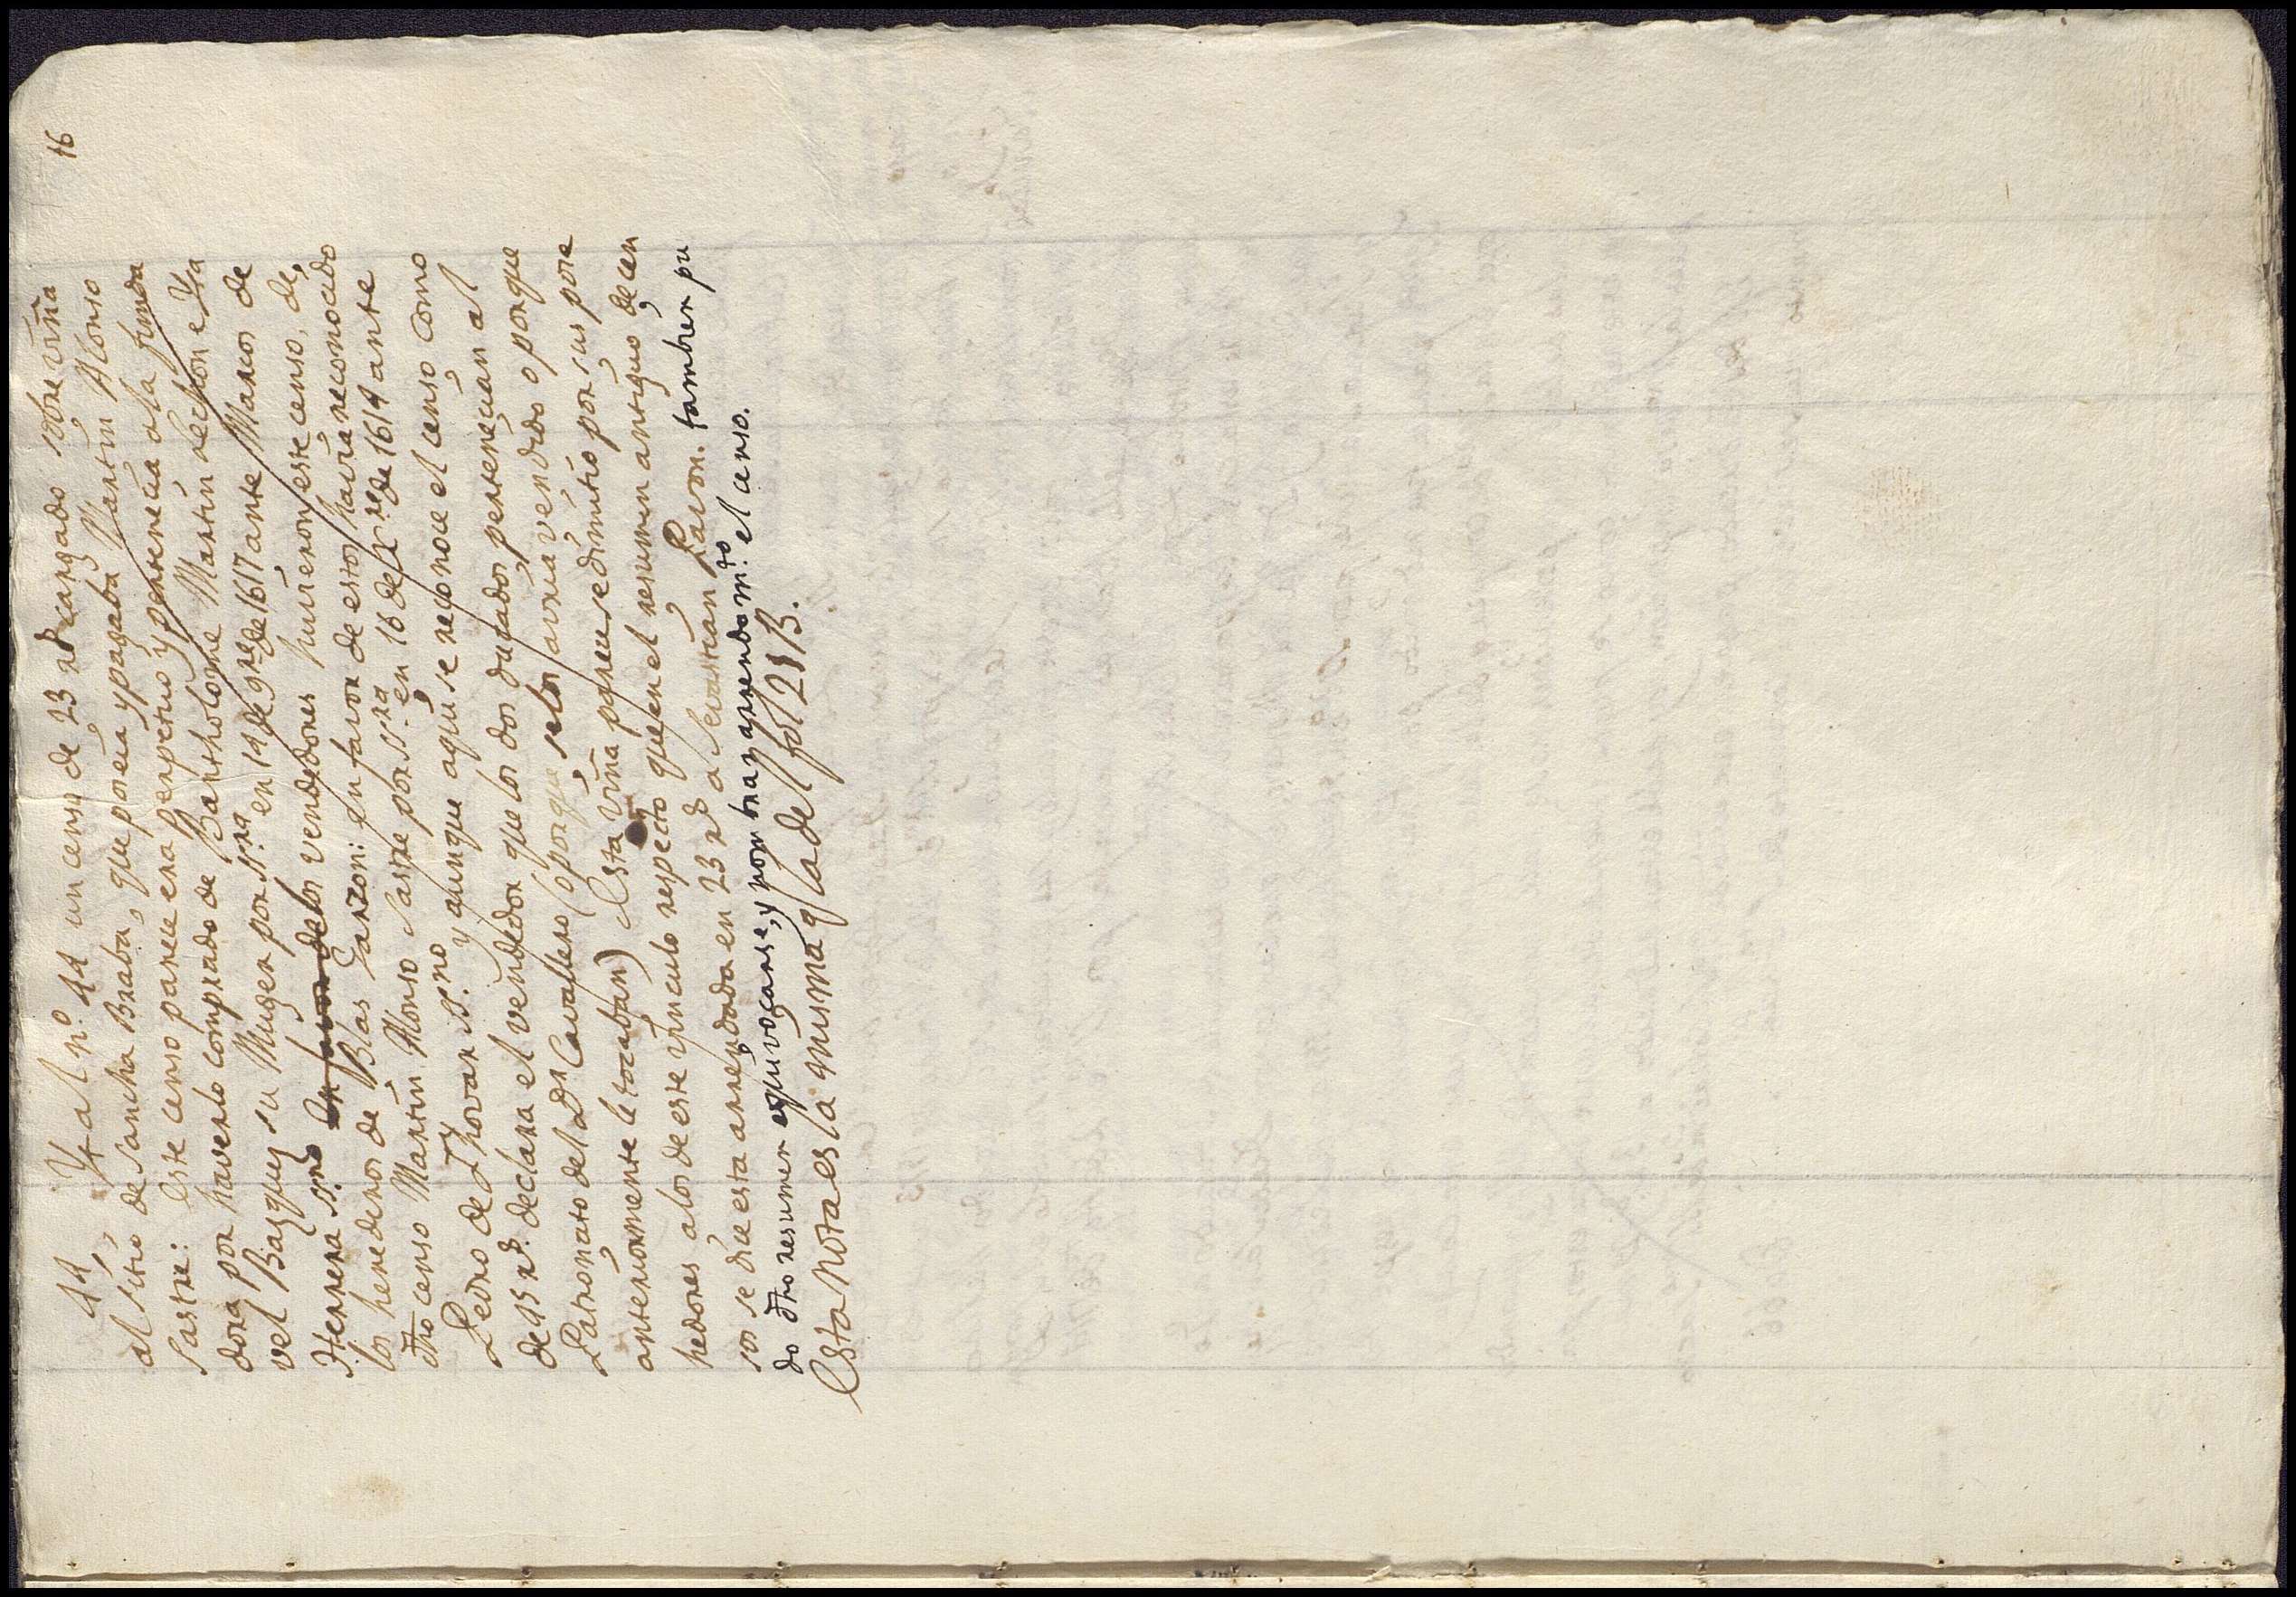 16
44, Yt al nº. 44 un censo de 23 rs cargado sobre viña
al sitio de sancha Braba, que poseia y pagaba Martin Alonso
Sastre: este censo parece era perpetuo y pertenecia a la funda
dora por haverlo comprado de Bartholome Martin
vel Bazquez su Muger por ssra en 14 de 9re de 1617 ante Marcos de
Herrera ssno en favor de los vendedores huvieron este censo, de,
los herederos de Blas Garzon: en favor de estos havia reconocido
dho censo Martin Alonso Sastre por ssra en 16 de xre de 1614 ante
Pedro de Thovar ssno y aunque aqui se reconoce el censo como
de 45 rs. declara el vendedor que los dos ducados pertenecian al
Patronato del Dr Cavallero (o porque se los avria vendido o porque
anteriormente le tocaban) esta viña parece se dimitio por sus pose
hedores a los de este vinculo respecto que en el resumen antiguo de cen
sos se dice esta arrendada en 23 rs a Sevastian Pavon. tambien pu
do dho resumen equivocarse, y nombrar arrendomto el censo.
Esta nota es la misma q la del fol 21 B.